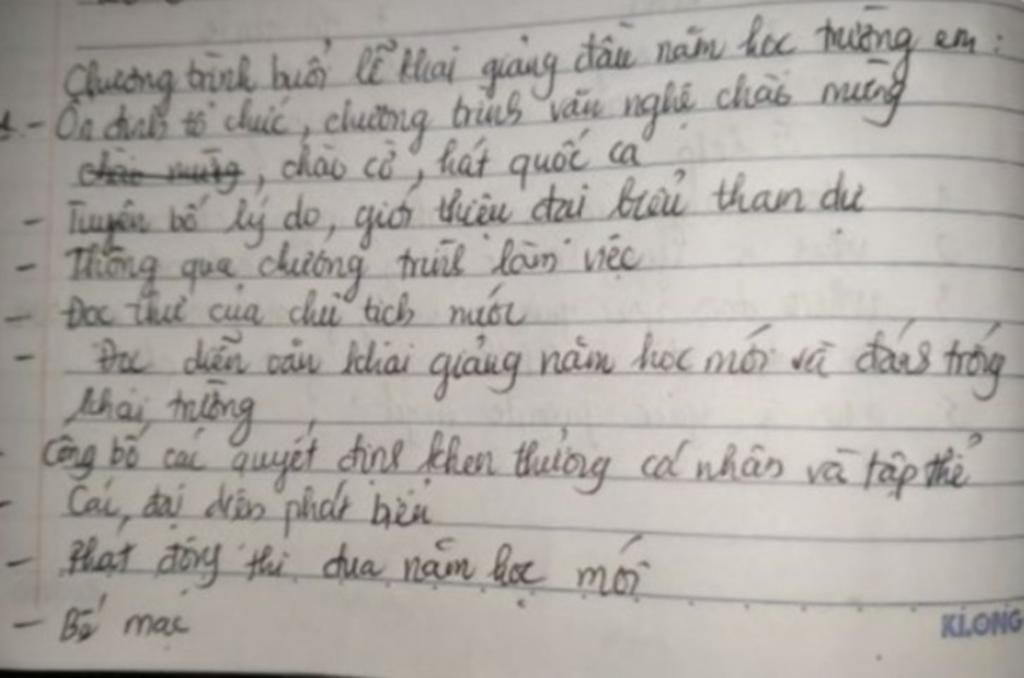 Chương trình buổi lễ khai giảng đầu năm học trường em:
- Ổn định tổ chức, chương trình văn nghệ chào mừng
chào mừng, chào cờ, hát quốc ca
- Tuyên bố lý do, giới thiệu đại biểu tham dự
- Thông qua chương trình làm việc
- Đọc thư của chủ tịch nước
- Đọc diễn văn khai giảng năm học mới và đánh trống
khai trường
- Công bố các quyết định khen thưởng cá nhân và tập thể
- Các đại diện phát biểu
- Phát động thi đua năm học mới
- Bế mạc
KLONG